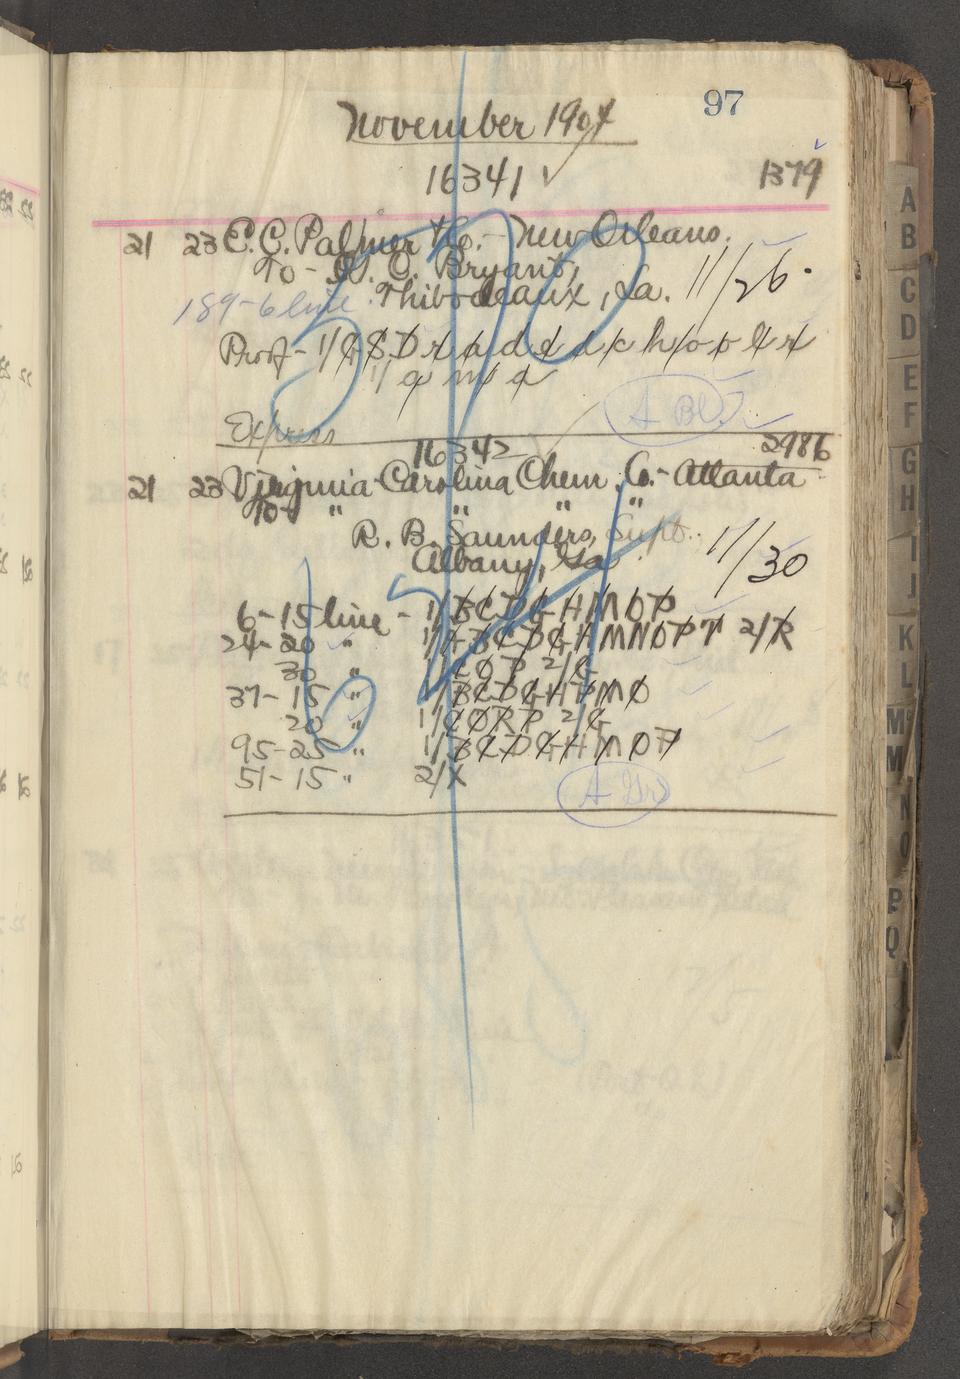 97
November 1907
16341 ✓ 1379
21 23 C.C. Palmer & Co. - New Orleans.
To - H. C. Bryant,
189-6 line. Thibodeaux, La. 11/26.
Proof - 1/
1/ a m a
A Bl
Express
16342 2986
21 23 Virginia-Carolina Chem. Co. - Atlanta
To - " " " "
R. B. Saunders, Supt.
Albany, Ga 11/30
6-15 line - 1/BCDGHMOP
24-20 " 1/ABCDGHMNOPT 2/R
30 " 1/COP 2/G
37-15 " 1/BCDGHPMO
20 " 1/CORP 2/G
95-25 " 1/BCDGHMOP
51-15 " 2/X
A Gr
A
B
C
D
E
F
G
H
I
J
K
L
Mc
M
N
O
P
Q